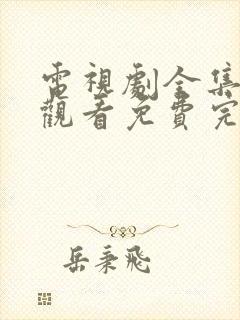 電視劇全集
觀看免費完
岳秉飛